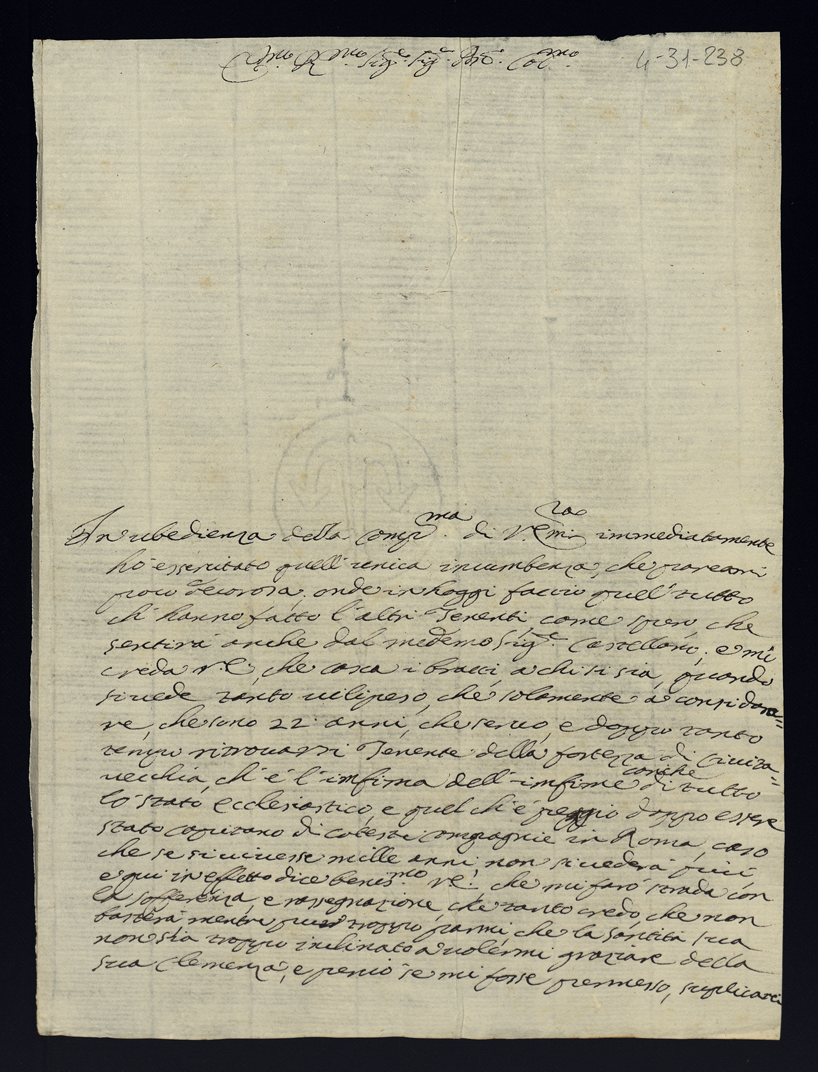 Ill.mo R.mo Sig.e Sig.e Pr̃e. Col.mo
4-31-238
In ubedienza della comp.ma di V. Em.za immediatamente
hò esseruitato quell'unica incumbenza, che pareami
poco decorosa, onde in hoggi faccio quell tutto
ch'hanno fatto l'altri Tenenti, come spero, che
sentirà anche dal medemo Sig.e Castellano; e mi
creda V.E., che casca i bracci a chi si sia, quando
si uede tanto uilipeso, che solamente à considera=
re, che sono 22 anni, che seruo, e doppo tanto
tempo ritrouarsi Tenente della fortezza di Ciuita=
uecchia, ch'è l'infima dell'infime anche di tutto
lo stato ecclesiastico, e quel ch'è peggio doppo essere
stato capitano di coteste compagnie in Roma, caso
che se si uiuesse mille anni non si uederà più
e qui in effetto dice benis.mo V.E., che mi farò strada con
la sofferenza, e rassegnazione, che tanto credo, che non
basterà mentre pur troppo parmi che la Santità Sua
non sia troppo inclinato a uolermi graziare della
sua Clemenza, e perciò se mi fosse permesso, suplicarei